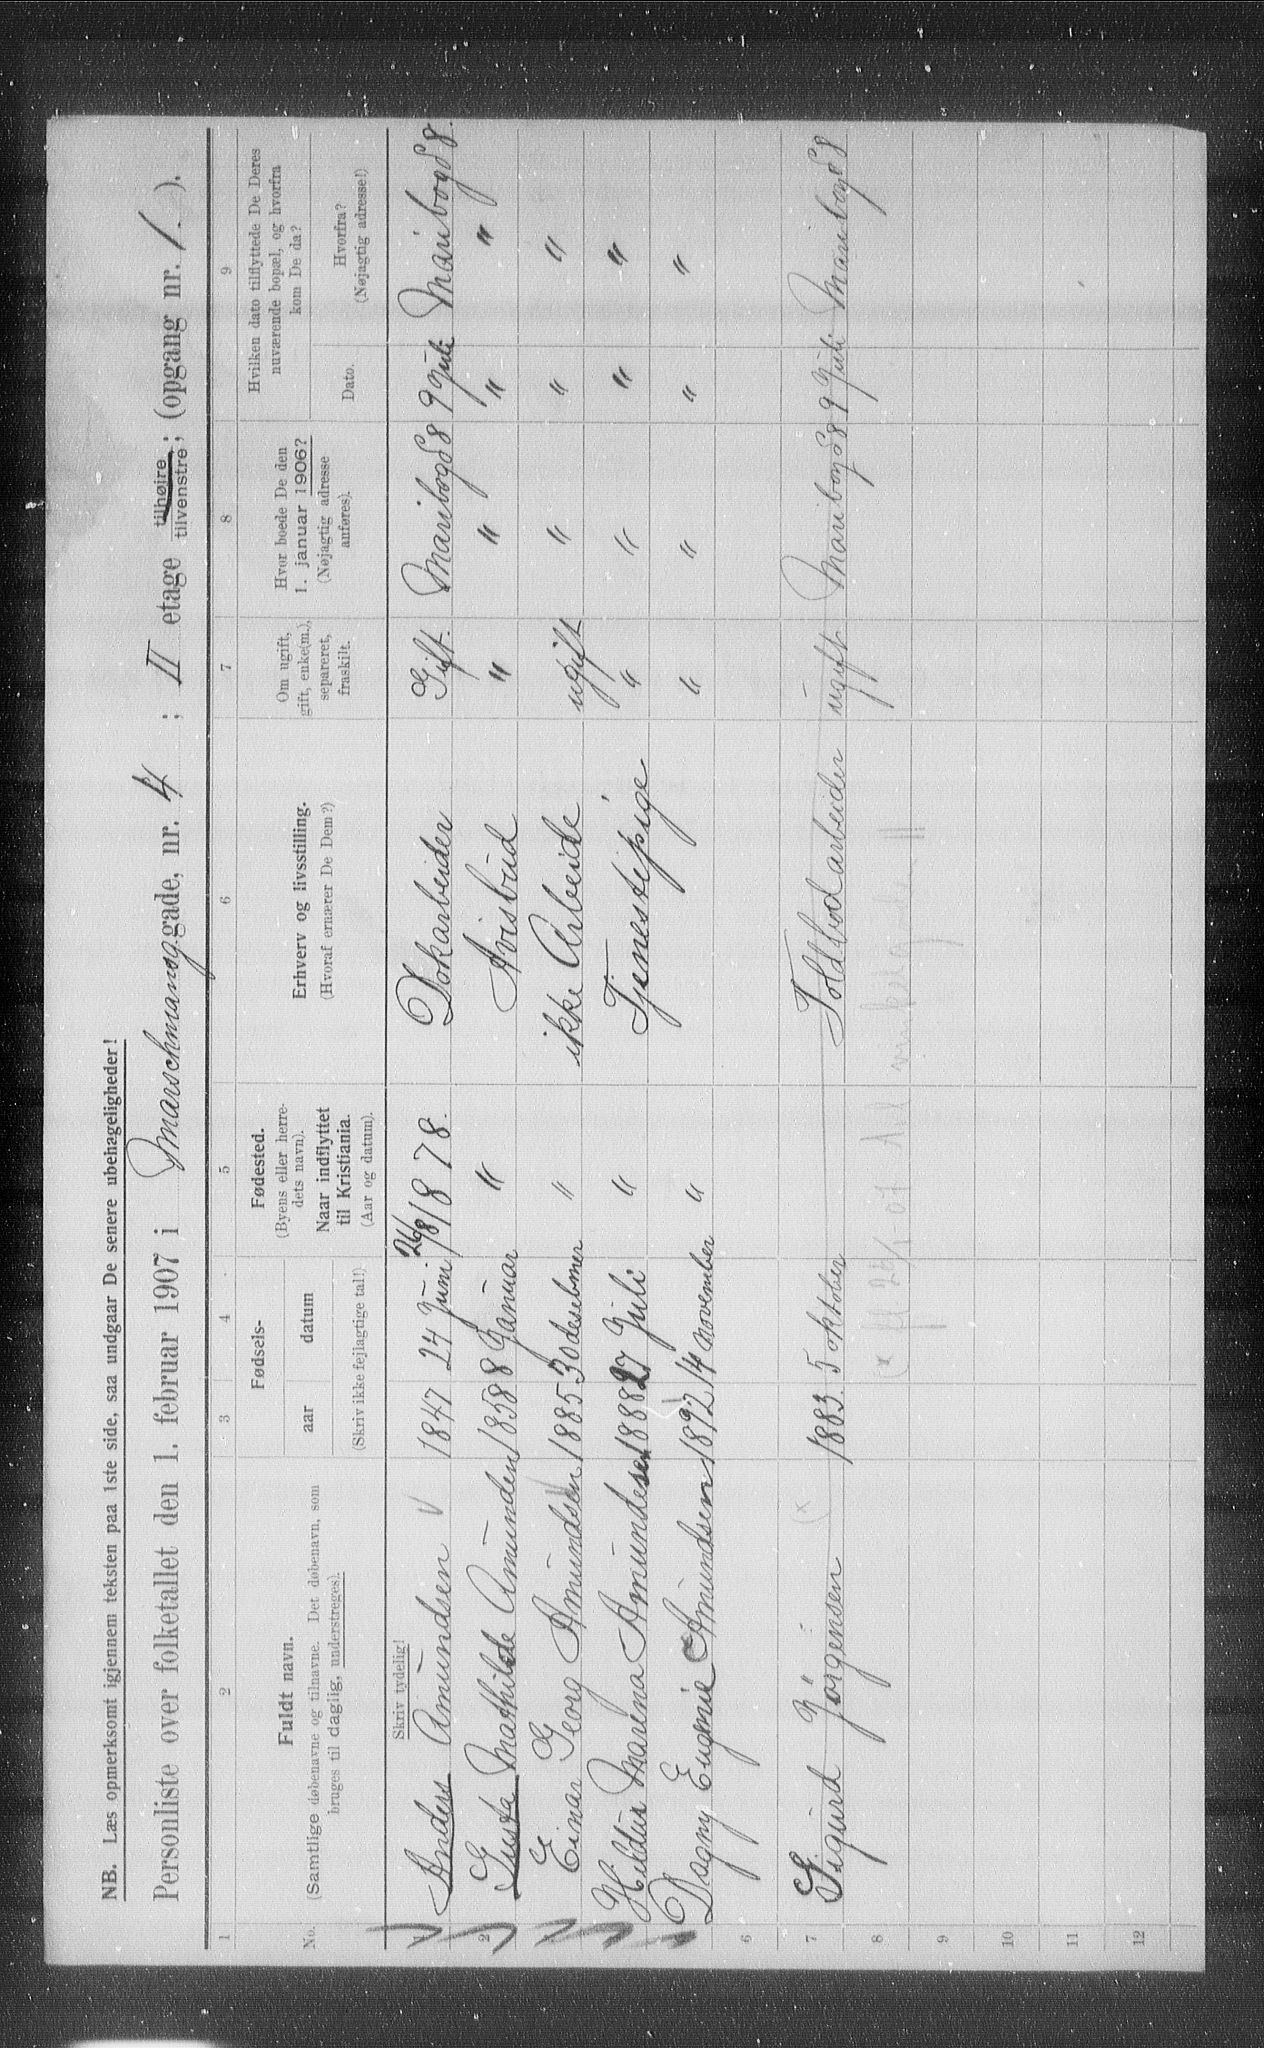 NB. Læs opmerksomt igjennem teksten paa 1ste side, saa undgaar De senere ubehageligheder!
Personliste over folketallet den 1. februar 1907 i Marschmansggade, nr. 4 ; II etage tilhøire tilvenstre; (opgang nr. 1.).
1 2 3 4 5 6 7 8 9
No.
Fuldt navn.
(Samtlige døbenavne og tilnavne. Det døbenavn, som
bruges til daglig, understreges).
Skriv tydelig!
Fødsels-
aar datum
(Skriv ikke fejlagtige tal!)
Fødested.
(Byens eller herre-
dets navn).
Naar indflyttet
til Kristiania.
(Aar og datum).
Erhverv og livsstilling.
(Hvoraf ernærer De Dem?)
Om ugift,
gift, enke(m.),
separeret,
fraskilt.
Hvor boede De den
1. januar 1906?
(Nøjagtig adresse
anføres).
Hvilken dato tilflyttede De Deres
nuværende bopæl, og hvorfra
kom De da?
Dato.
Hvorfra?
(Nøjagtig adresse!)
1 Anders Amundsen 1847 24 Juni 26/8 1878. Dokarbeider Gift. Maribogd 8 9 Juli Maribogd 8.
2 Gusta Mathilde Amunden 1858 8 Januar " Avisbud " " " "
Einar Georg Amundsen 1885 30 desebmer " ikke Arbeide ugift " " "
Hildur Marena Amundesen 1888 27 Juli " Tjenestepige " " " "
Dagny Eugenie Amundsen 1892 14 November " " " " "
6
7 Sigurd Jörgensen (x 1883. 5 oktober Toldbodarbeider ugift Maribogd 8 9 Juli Maribogd 8
8 (x fl 26/1-07
9
10
11
12